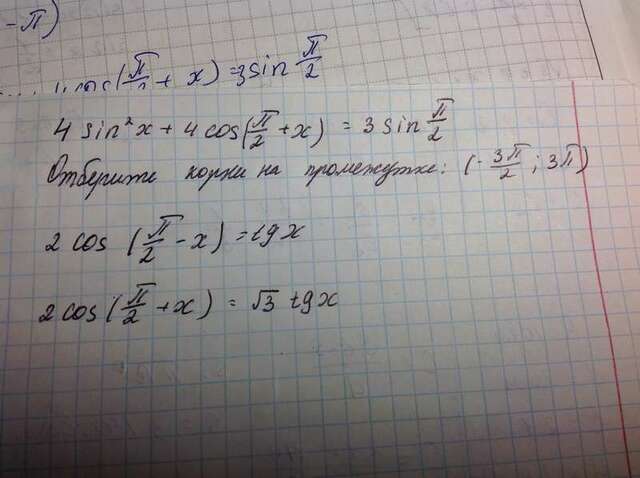 -π)
cos(π/2 + x) = 3sin π/2
4 sin²x + 4 cos(π/2 + x) = 3 sin π/2
Отберите корни на промежутке: (-3π/2 ; 3π)
2 cos (π/2 - x) = tg x
2 cos (π/2 + x) = √3 tg x